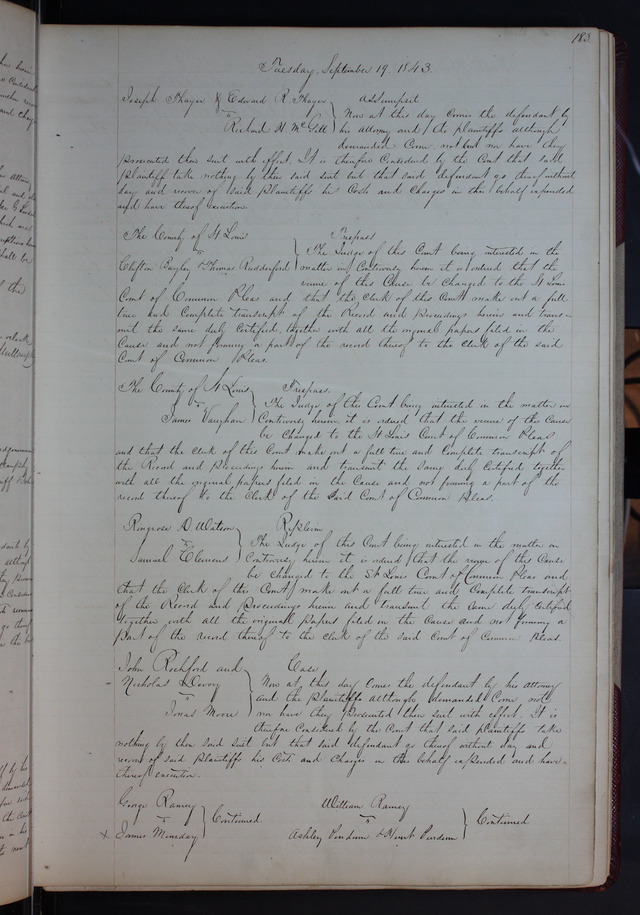 183
Tuesday, September 19. 1843.
Joseph Thayer & Edward R. Thayer } Assumpsit
vs
Richard H McGill
Now at this day comes the defendant by
his attorney and the plaintiffs although
demanded Come not but nor have they
prosecuted their suit with effect. It is therefore Considered by the Court that said
Plaintiff take nothing by their said suit but that said defendant go thereof without
day and recover of said Plaintiffs his Costs and Charges in this behalf expended
and have thereof execution.
The County of St Louis } Trespass
vs
Clifton Bayley & Thomas Rutherford
The Judge of this Court being interested in the
matter in Controversy herein it is ordered that the
venue of this Cause be changed to the St Louis
Court of Common Pleas and that the Clerk of this Court make out a full
true and Complete transcript of the Record and Proceedings herein and trans-
mit the same duly Certified, together with all the original papers filed in the
Cause and not forming a part of the record thereof to the Clerk of the said
Court of Common Pleas.
The County of St Louis } Trespass.
vs
James Vaughan
The Judge of this Court being interested in the matter in
Controversy herein it is ordered that the venue of this Cause
be Changed to the St Louis Court of Common Pleas
and that the Clerk of this Court make out a full true and Complete transcript of
the Record and Proceedings herein and transmit the same duly Certified together
with all the original papers filed in the Cause and not forming a part of the
record thereof to the Clerk of the said Court of Common Pleas.
Ringrose D. Watson } Replevin
vs
Samuel Clemens
The Judge of this Court being interested in the matter in
Controversy herein it is ordered that the venue of this Cause
be changed to the St. Louis Court of Common Pleas and
that the Clerk of this Court make out a full true and Complete transcript
of the Record and Proceedings herein and transmit the same duly Certified
together with all the original papers filed in the Cause and not forming a
part of the record thereof to the Clerk of the said Court of Common Pleas.
John Rochford and } Case
Nicholas Devoy
vs
Jonas Moore
Now at this day Comes the defendant by his attorney
and the plaintiffs although demanded Come not
nor have they prosecuted their suit with effect. It is
therefore Considered by the Court that said plaintiffs take
nothing by their said suit but that said defendant go thereof without day and
recover of said Plaintiffs his Costs and Charges in this behalf expended and have
thereof execution.
George Ramey } Continued
vs
x James Monday
William Ramey } Continued
vs
Ashley